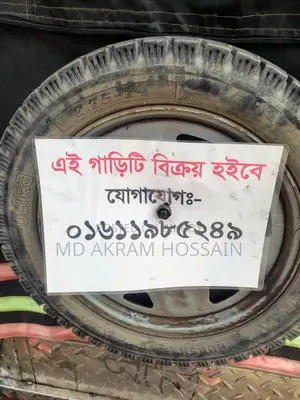 এই গাড়িটি বিক্রয় হইবে
যোগাযোগঃ-
০১৬১১৯৮৫২৪৯
MD AKRAM HOSSAIN